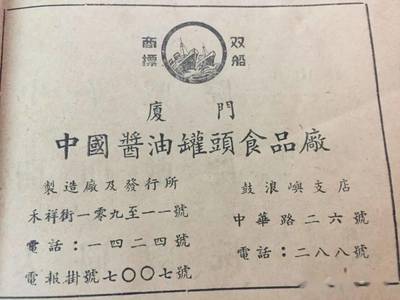 双船
商標
廈門
中國醬油罐頭食品廠
製造廠及發行所
禾祥街一〇九至一一號
電話：一四二四號
電報掛號七〇〇七號
鼓浪嶼支店
中華路二六號
電話：二八八號